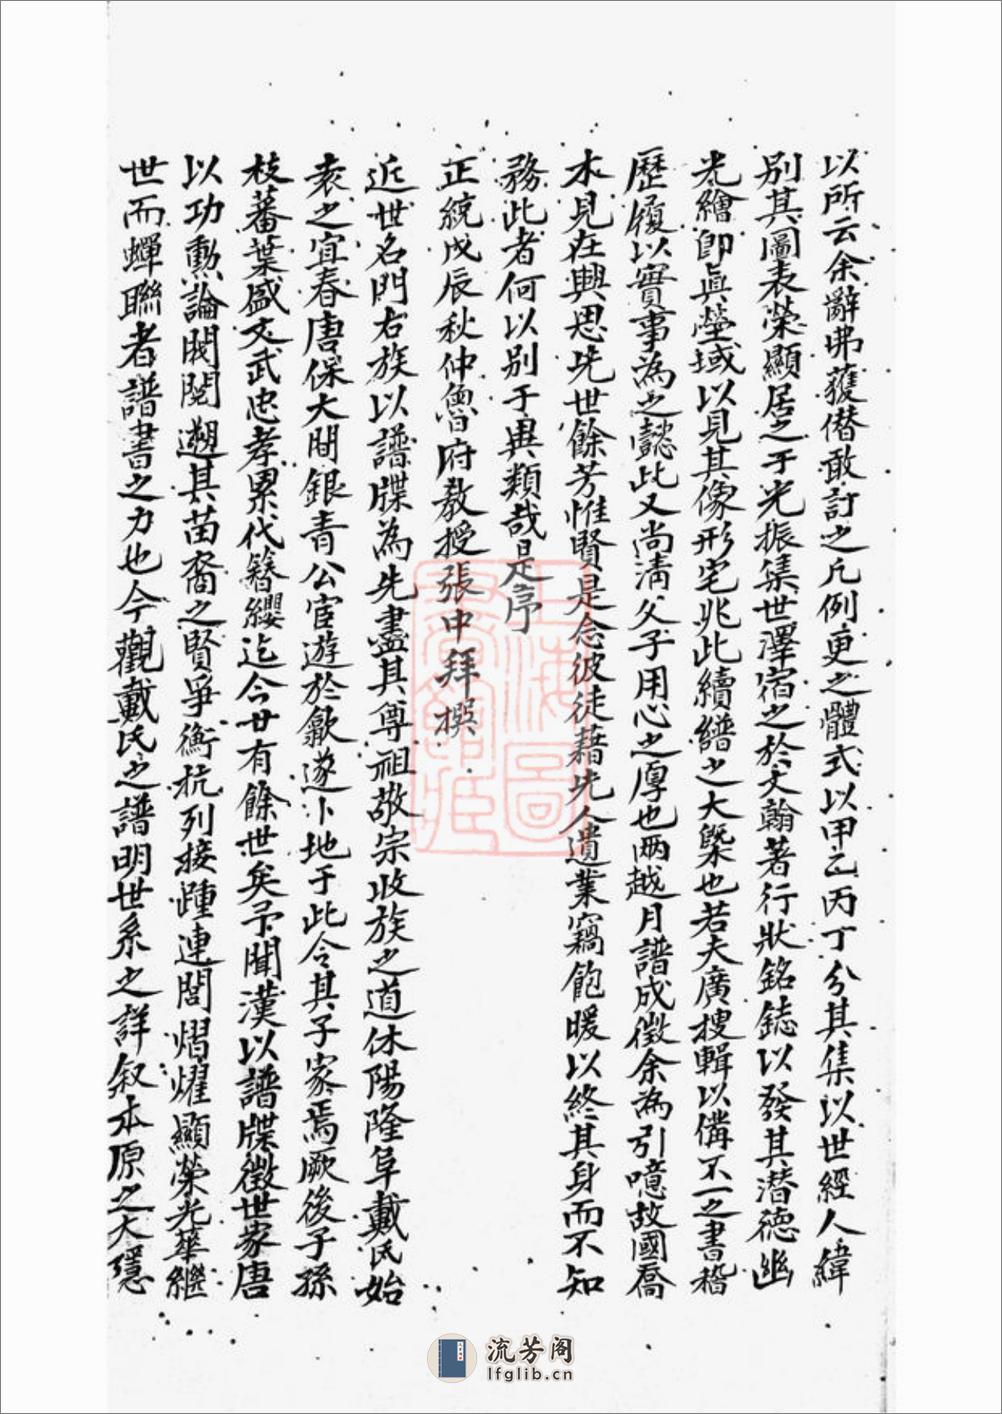 以所云余辭弗獲僣敢訂之凢例更之體式以甲乙丙丁分其集以世經人緯
別其圖表榮顯居之于光振集世澤宿之於文翰著行狀銘誌以發其潛德幽
光繪卽眞塋域以見其像形宅兆此續譜之大槩也若夫廣搜輯以備不一之書稽
歷履以實事為之懿此又尚清父子用心之厚也兩越月譜成徵余為引噫故國喬
木見在興思先世餘芳惟賢是念彼徒藉先人遺業竊飽暖以終其身而不知
務此者何以别于異類哉是序
正統戊辰秋仲魯府教授張中拜撰
近世名門右族以譜牒為先盡其尊祖敬宗收族之道休陽隆阜戴氏始
袁之宜春唐保大間銀青公宦遊於歙遂卜地于此令其子家焉厥後子孫
枝蕃葉盛文武忠孝累代簪纓迄今廿有餘世矣予聞漢以譜牒徵世家唐
以功勳論閥閱遡其苗裔之賢爭衡杭列接踵連閭熠燿顯榮光華繼
世而蟬聯者譜書之力也今觀戴氏之譜明世系之詳叙本原之大隱
上海圖
書館藏
流芳阁
lfglib.cn